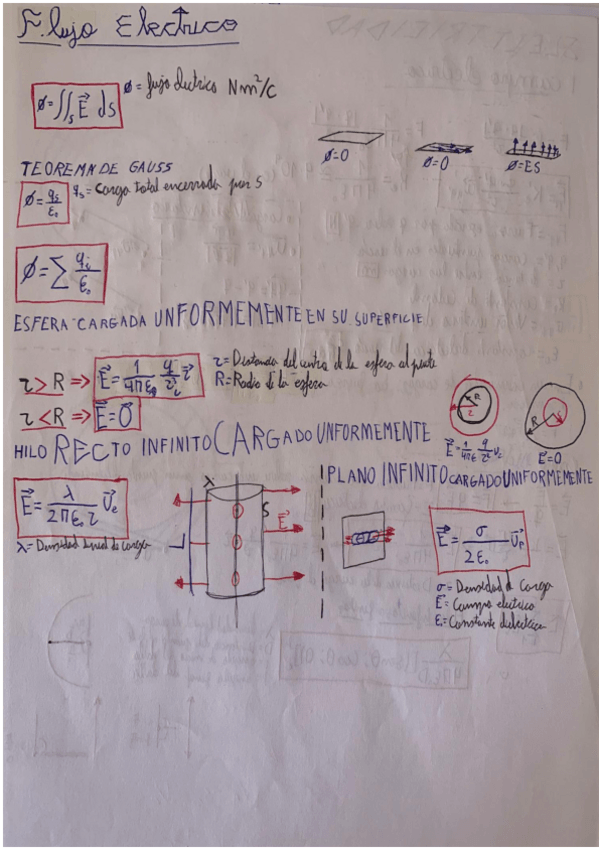 Flujo Electrico
ϕ=∬ₛE⃗ ds
ϕ= flujo electrico Nm²/C
ϕ=0
ϕ=0
ϕ=ES
TEOREMA DE GAUSS
ϕ=qₛ/ε₀
qₛ= Carga total encerrada por S
ϕ=∑ qᵢ/ε₀
ESFERA CARGADA UNFORMEMENTE EN SU SUPERFICIE
r > R => E⃗= 1/4πε₀ q/r² r⃗
r=Distancia del centro de la esfera al punto
R=Radio de la esfera
r < R => E⃗=0⃗
R
r
R
r
E⃗=1/4πε q/r² Uᵣ
E⃗=0
HILO RECTO INFINITO CARGADO UNFORMEMENTE
E⃗= λ/2πε₀r U⃗e
λ= Densidad lineal de carga
λ
S
E⃗
PLANO INFINITO CARGADO UNIFORMEMENTE
E⃗= σ/2ε₀ U⃗p
σ= Densidad d Carga
E⃗= Campo electrico
ε₀= Constante dielectrica